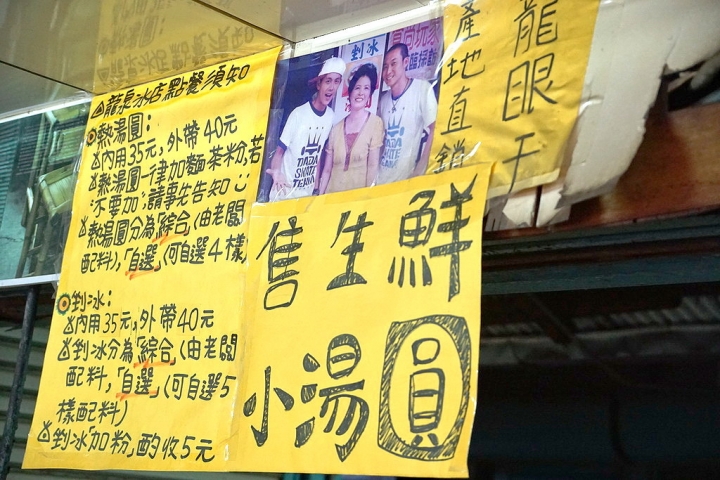 龍泉冰店點餐須知
熱湯圓:
內用35元,外帶40元
熱湯圓一律加麵茶粉,若
不要加;請事先告知
熱湯圓分為「綜合」(由老闆
配料),「自選」(可自選4樣
剉冰:
內用35元,外帶40元
剉冰分為「綜合」(由老闆
配料,「自選」(可自選5
樣配料)
剉冰「加粉」酌收5元
剉冰
DADA
SKATE
TEAM
DADA
SKATE
TEAM
龍眼干
產地直銷
售生鮮
小湯圓